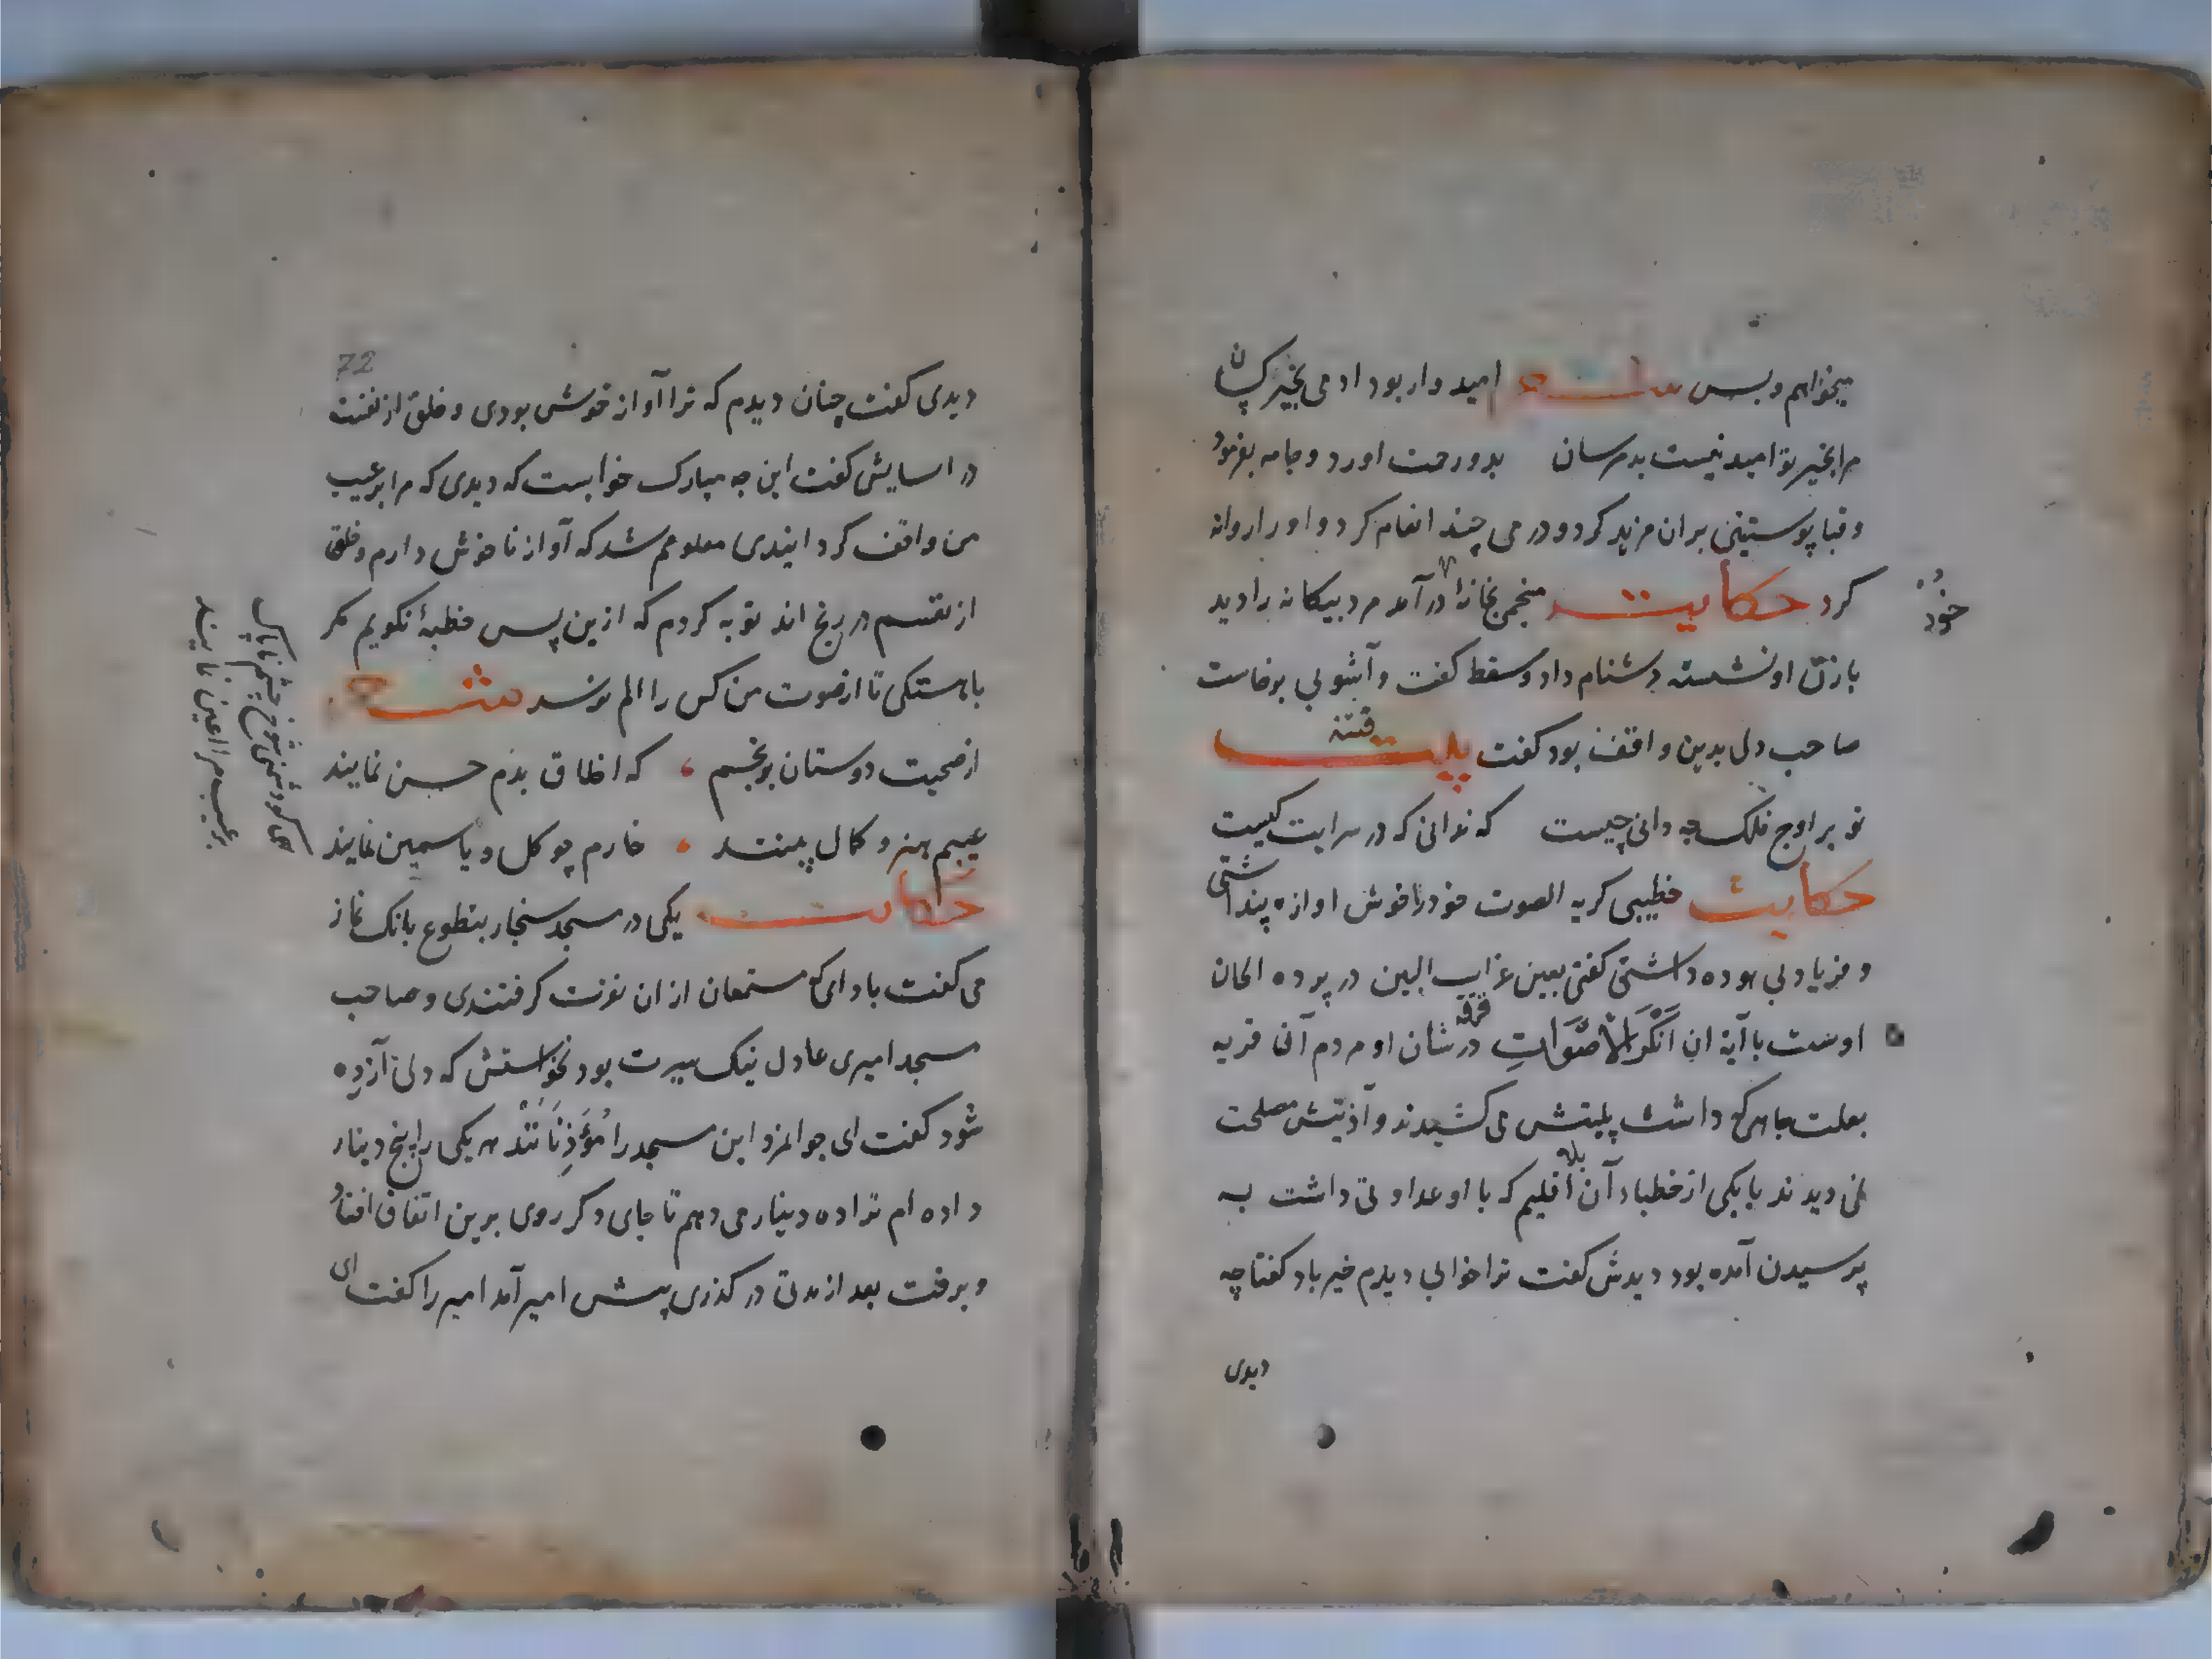 میخواهم و بس شعر امیدوار بود ادمی بخیر کسان
مرا بخیر تو امید نیست بد مرسان بدو رحمت اورد و جامه بفرمود
و قبا پوستینی بران مزید کرد و درمی چند انعام کرد و او را روانه
کرد حکایت منجمی بخانه در آمد مرد بیکانه را دید
خود
با زن او نشسته دشنام داد و سقط کفت و آشوبی برخاست
فتنه
صاحب دلی بدین واقف بود کفت بیت
تو بر اوج فلک چه دانی چیست که ندانی که در سرایت کیست
حکایت خطیبی کریه الصوت خود را خوش اوازه پنداشتی
و فریاد بی هوده داشتی کفتی نعیق غراب البین در پرده الحان
اوست یا آیة ان انکر الاصوات در شان او مردم آن قریه
بعلت جاهی که داشت بلیتش می کشیدند و اذیتش مصلحت
نمی دیدند تا یکی از خطباء آن اقلیم که با او عداوتی داشت به
پرسیدن آمده بود دیدش کفت ترا خوابی دیدم خیر باد کفتا چه
دیدی
72
دیدی کفت چنان دیدم که ترا آواز خوش بودی و خلق از نفست
در اسایش کفت این چه مبارک خوابست که دیدی که مرا بر عیب
من واقف کردانیدی معلومم شد که آواز ناخوش دارم و خلق
از نفسم در رنج اند توبه کردم که ازین پس خطبه نکویم مکر
باهستکی تا از صوت من کس را الم نرسد شعر
از صحبت دوستان برنجم که اخلاق بدم حسن نمایند
عیبم هنر و کمال بینند خارم چو کل و یاسمین نمایند
کو دشمن شوخ چشم ناپاک
عیب مرا بمن نمایند
حکایت یکی در مسجد سنجار بتطوع بانک نماز
می کفت باداى که مستمعان از ان نفرت کرفتندی و صاحب
مسجد امیری عادل نیک سیرت بود نخواستش که دل آزرده
شود کفت ای جوانمرد این مسجد را مؤذنانند هر یکی را پنج دینار
داده ام ترا ده دینار می دهم تا جای دکر روی برین اتفاق افتاد
و برفت بعد از مدتی در کذری پیش امیر آمد امیر را کفت ای